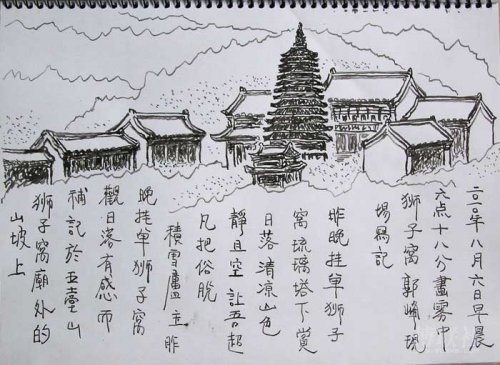 二〇一〇年八月六日早晨
六点十八分畫雾中
狮子窝 郭峰現
場寫記
昨晚挂单狮子
窝琉璃塔下赏
日落清凉山色
靜且空 让吾超
凡把俗脱
積雪廬主昨
晚挂单狮子窝
觀日落有感而
補記於五臺山
狮子窝廟外的
山坡上